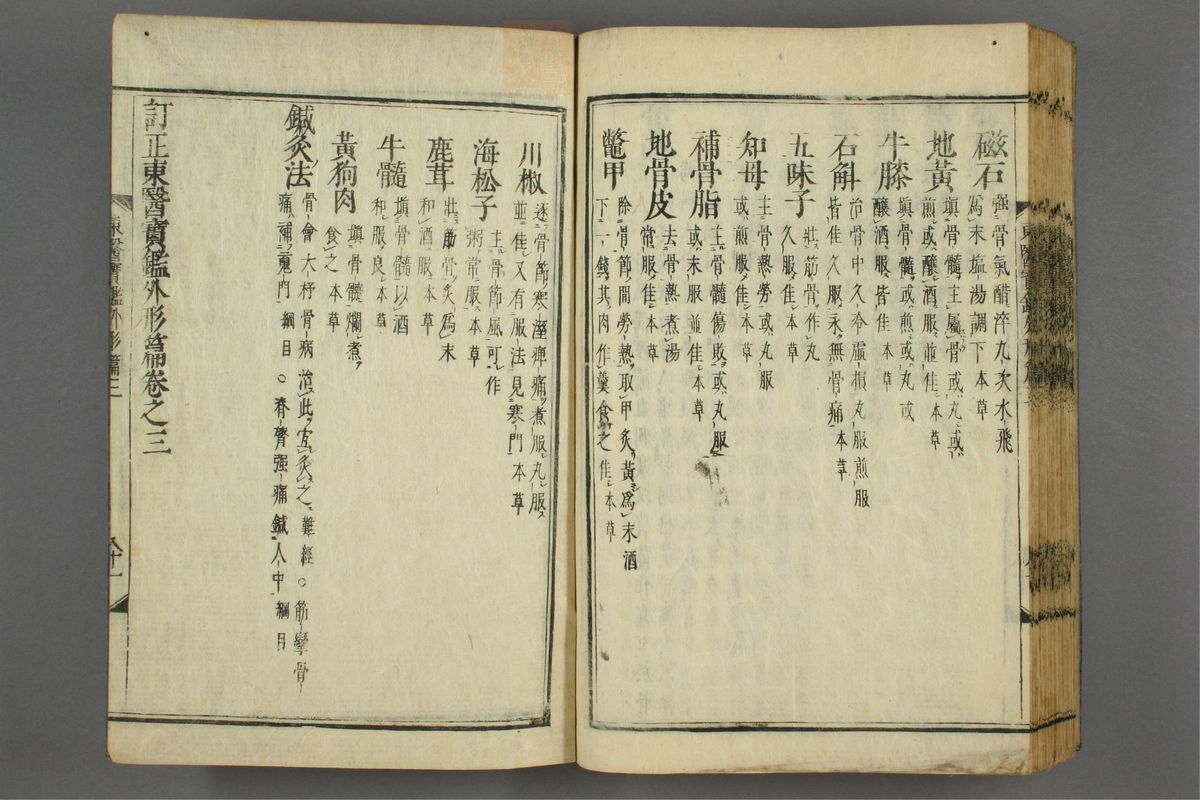 磁石
强骨氣醋淬九次水飛
爲末塩湯調下本草
地黃
塡骨髓主屬骨或丸或
煎或釀酒服並佳本草
牛膝
塡骨髓或煎或丸或
釀酒服皆佳本草
石斛
治骨中久冷虛損丸服煎服
皆佳久服永無骨痛本草
五味子
壯筋骨作丸
久服佳本草
知母
主骨熱勞或丸服
或煎服佳本草
補骨脂
主骨髓傷敗或丸服
或末服並佳本草
地骨皮
去骨熱煮湯
常服佳本草
鼈甲
除骨節間勞熱取甲炙黃爲末酒
下一錢其肉作羹食之佳本草
川椒
逐骨節寒溼痺痛煮服丸服
並佳又有服法見寒門本草
海松子
主骨節風可作
粥常服本草
鹿茸
壯筋骨炙爲末
和酒服本草
牛髓
塡骨髓以酒
和服良本草
黃狗肉
塡骨髓爛煮
食之本草
鍼灸法
骨會大杼骨病治此宜灸之難經○筋攣骨
痛補魂門綱目○脊膂强痛鍼人中綱目
訂正東醫寶鑑外形篇卷之三
東醫寶鑑外形篇三
八十一